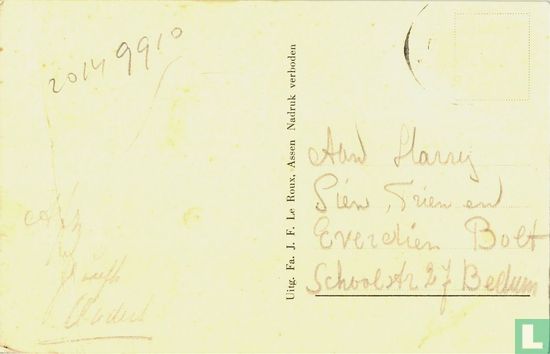 20149910
Uitg. Fa. J. F. Le Roux, Assen Nadruk verboden
Aan Harry
Sien, Trien en
Everdien Bolt
Schoolstr. 27 Bedum